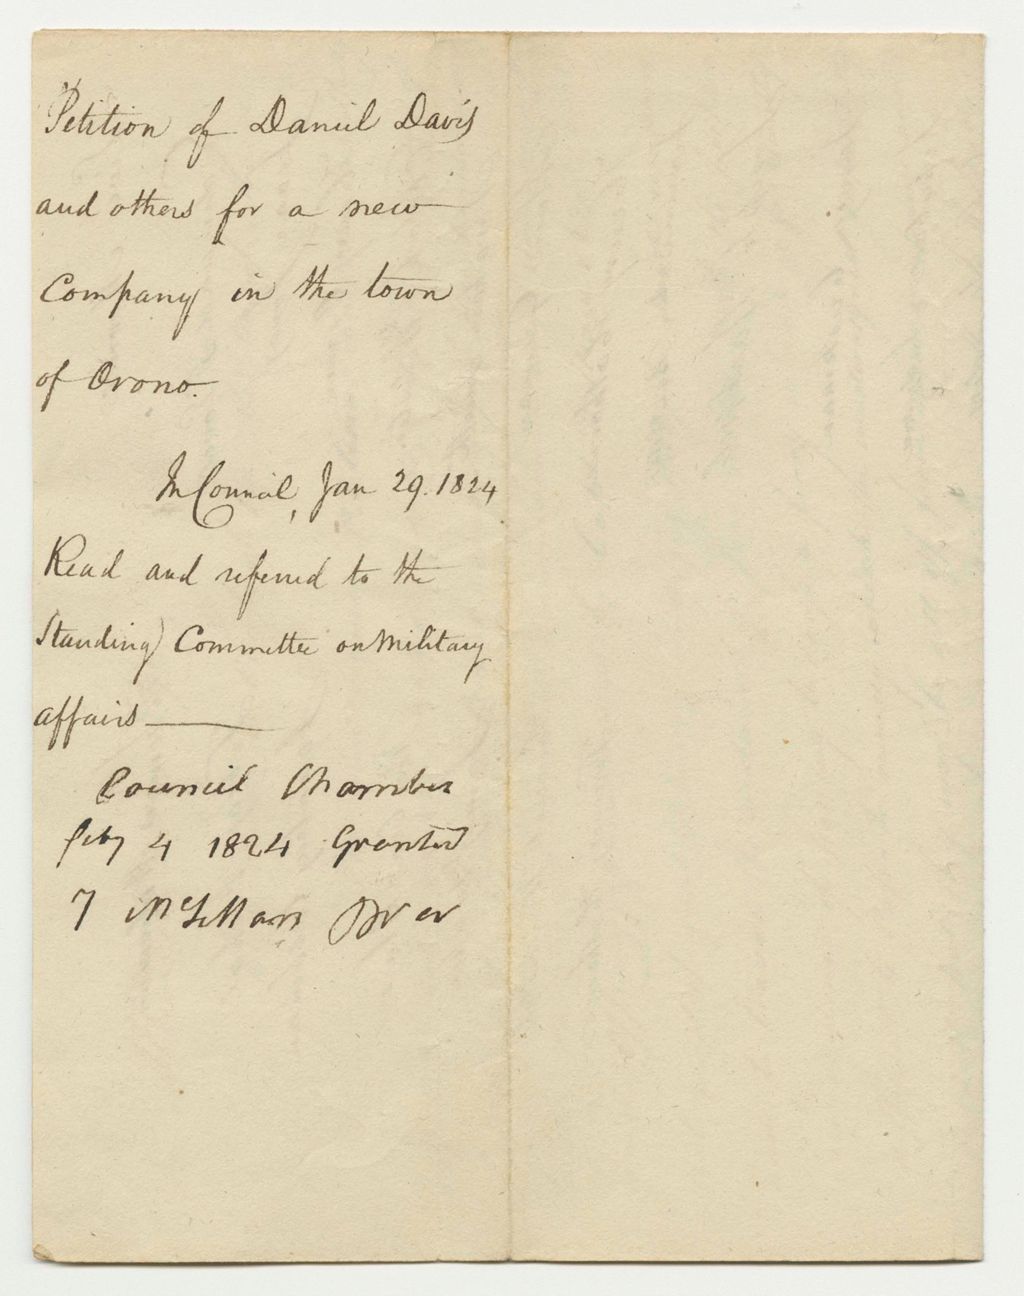 Petition of Daniel Davis
and others for a new
Company in the town
of Orono.
In Council, Jan 29. 1824
Read and referred to the
Standing Committee on Military
affairs
Council Chamber
Feby 4 1824 Granted